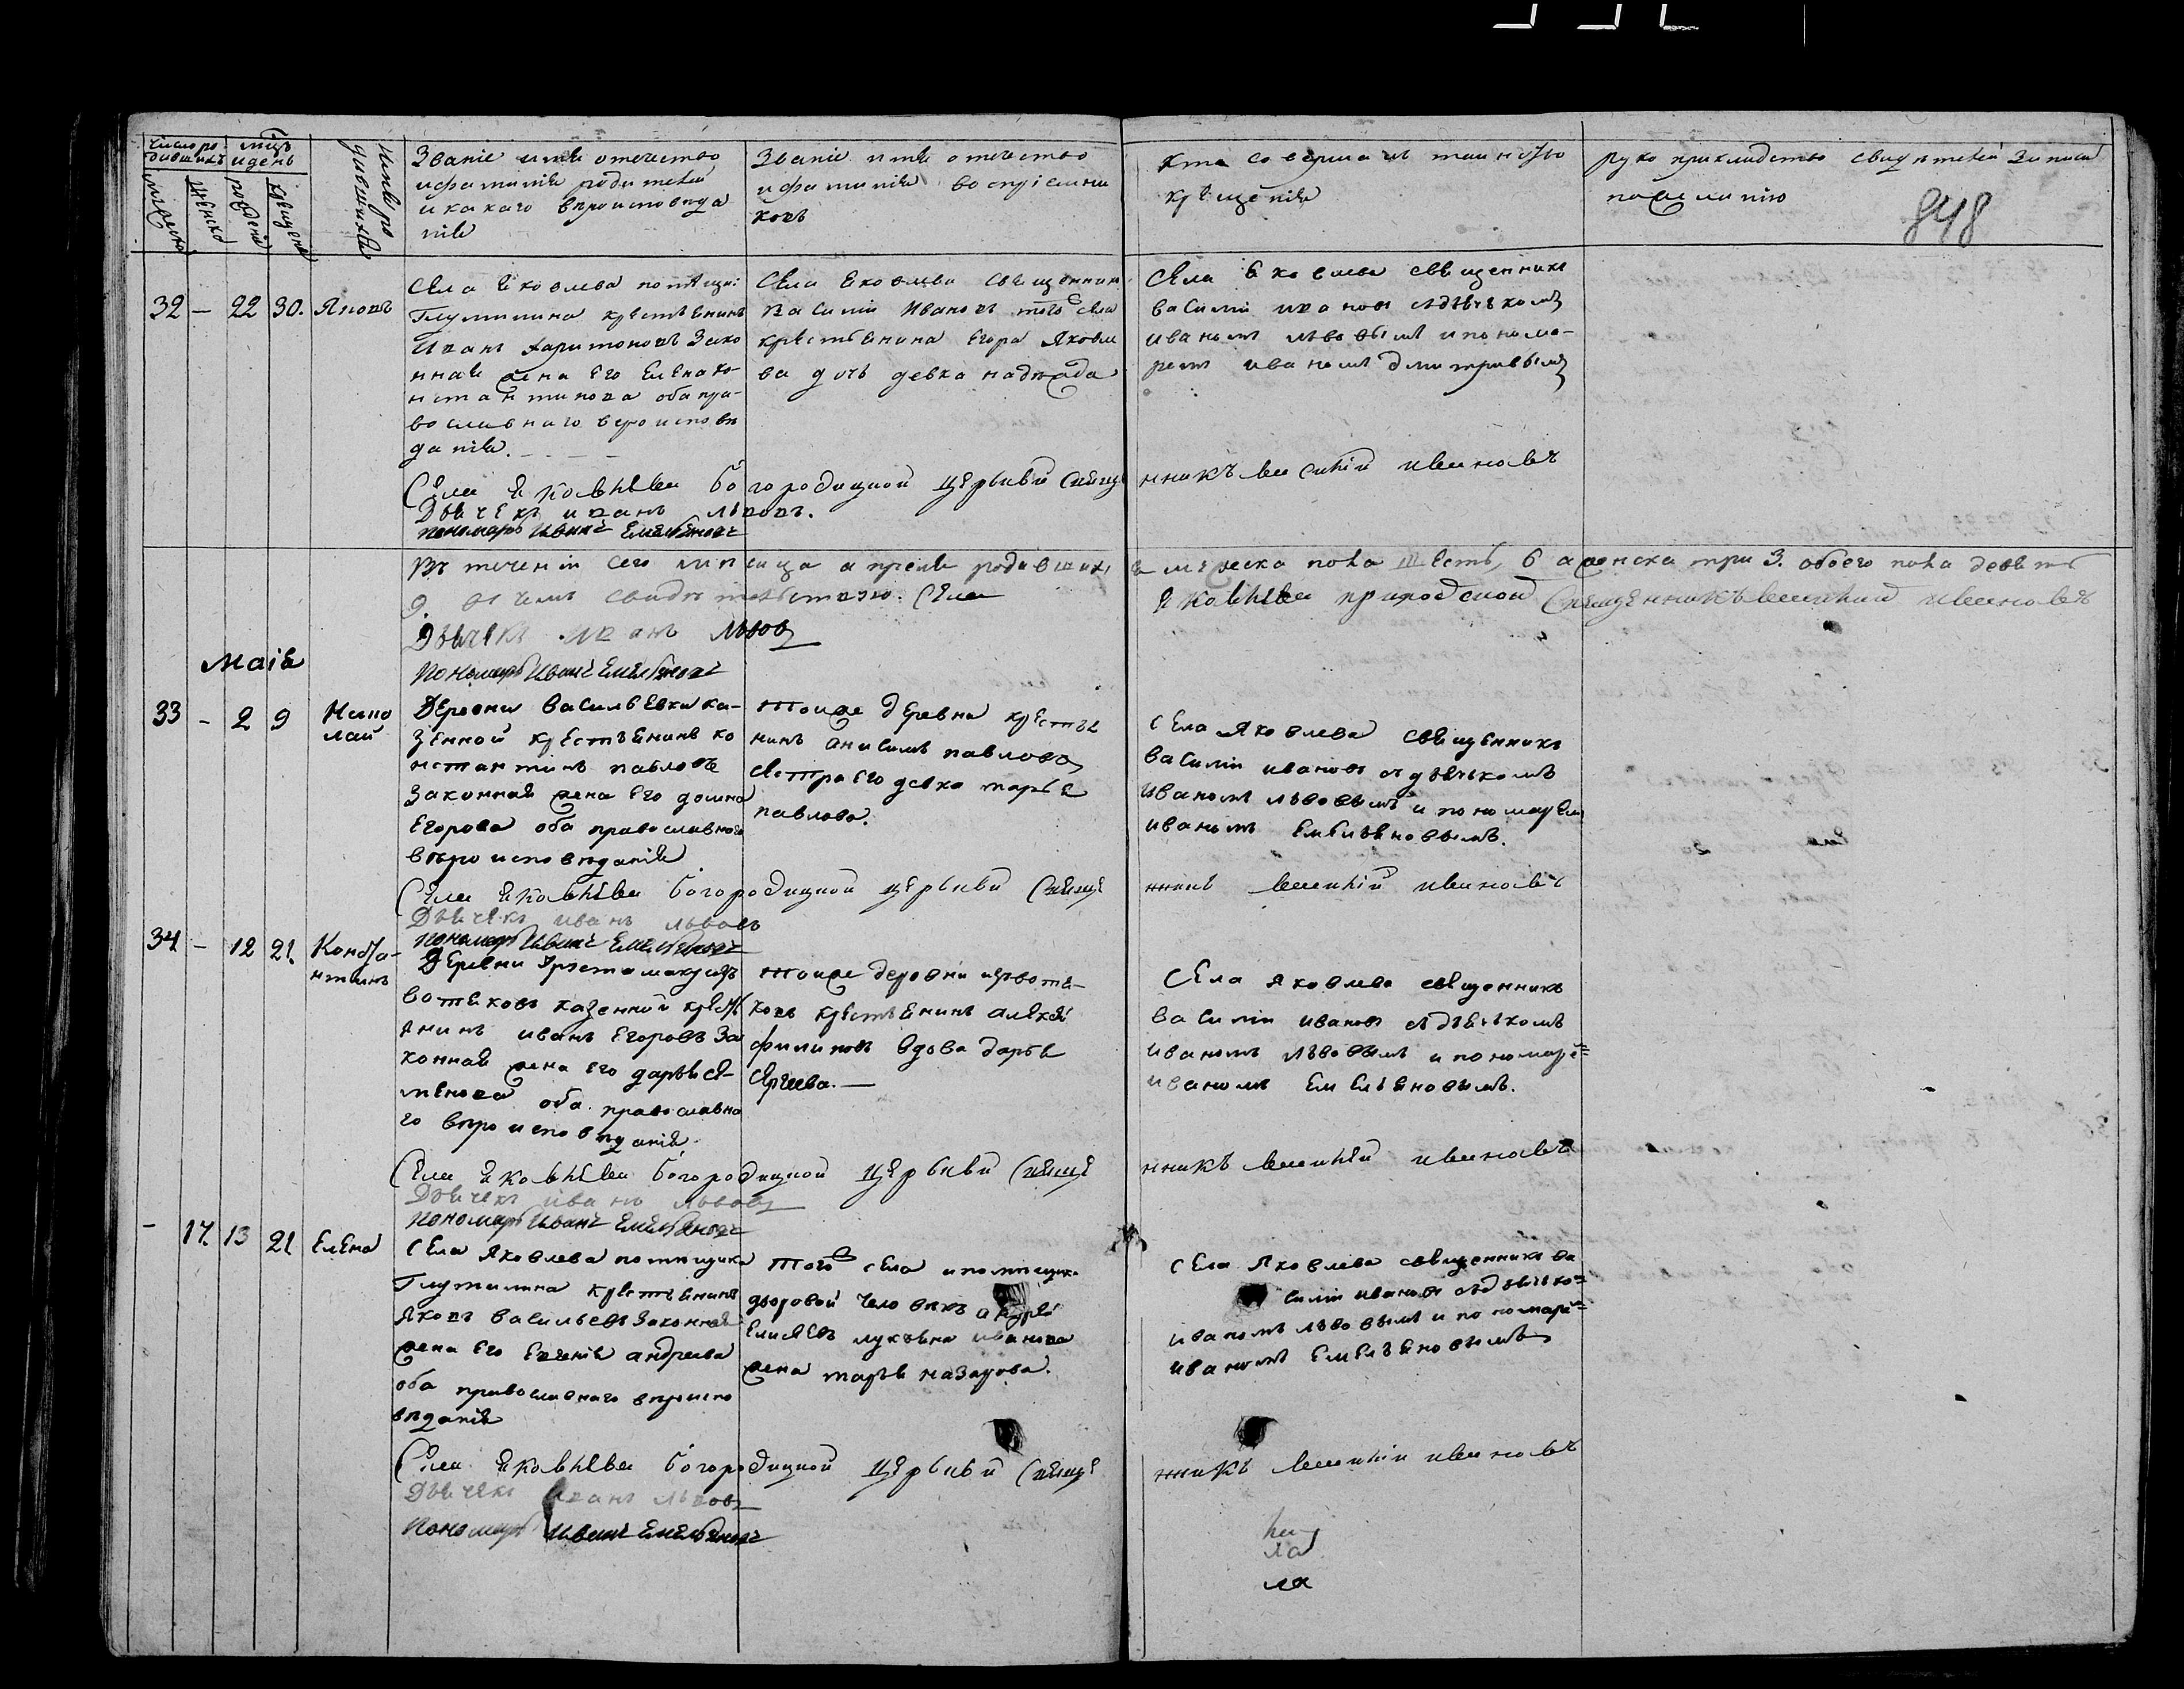 число ро
дившихъ
мцъ
и день
мужеска
женска
рожденія
крещенія
имя ро
дившихся
Званіе имя отечество
и фамилія родителей
и какаго вероисповеда
нія
Званіе имя отечество
и фамилія воспріемни
ковъ
кто совершалъ таинство
крещенія
рукоприкладство свидетелей записи
по желанію
848
32 — 22 30. Яковъ
Села Яковлева
крестьянинъ
Иванъ Харитоновъ Зако
нная жена его Елена ко-
нстантинова оба пра-
вославнаго вероисповъ
данія.
Села Яковлева священник
василій Ивановъ того села
крестьянина Егора Яковле
ва дочь девка надежда
Села Яковлева священникъ
василій ивановъ съ дьячкомъ
иваномъ львовымъ и понома-
ремъ иваномъ
Села Яковлева богородицкой церькви свяще нникъ василій ивановъ
Дьячекъ иванъ львовъ.
пономарь Иванъ Емельяновъ
Въ теченіи сего мѣсяца апреля родившихся мужеска пола шесть, 6 а женска три 3. обоего пола девять
9. въ чемъ свидѣтельствую. Села Яковлева приходской священникъ василий ивановъ
Дьячекъ иванъ Львовъ
пономарь Иванъ Емельяновъ
маія
33 - 2 9 Нико
лай
Деревни васильевки ка-
зенной крестьянинъ ко
нстантинъ павловъ
Законная жена его домна
Егорова оба православнаго
вѣроисповѣданія
тоиже деревни крестья
нинъ анисимъ павловъ
сестра его девка марья
павлова.
села Яковлева священникъ
василіи ивановъ съ дьячькомъ
иваномъ львовымъ и пономарем
иваномъ Емельяновымъ.
Села Яковлева богородицкой церькви свяще нникъ василій ивановъ
Дьячекъ иванъ львовъ
пономарь Иванъ Емельяновъ
34 - 12 21. Конста-
нтинъ
Деревни
казенной крестья
янинъ иванъ Егоровъ За
конная жена его дарья се-
менова оба православна
го вѣроисповѣданія
тоиже деревни
крестьянинъ алексѣй
филиповъ вдова дарья
сергеева.—
Села яковлева священникъ
василіи ивановъ съ дьячькомъ
иваномъ львовымъ и пономаре=
иваномъ Емельяновымъ.
Села Яковлева богородицкой церькви свяще нникъ василій ивановъ
Дьячекъ иванъ львовъ
пономарь Иванъ Емельяновъ
- 17. 13 21 Елена
Села Яковлева помещика
крестьянинъ
яковъ васильевъ законная
жена его андреева
оба православнаго вероиспо
вѣданія
того села и помѣщика
дворовой человѣкъ андрей
Елисеевъ лукьяна иванова
жена марья назарова.
села Яковлева священникъ ва
силіи ивановъ съ дьячько=
иваномъ львовымъ и пономаре=
иваномъ Емельяновымъ
Села Яковлева богородицкой церькви свяще нникъ василіи ивановъ
Дьячекъ Иванъ львовъ
пономарь Иванъ Емельяновъ
ла
ла